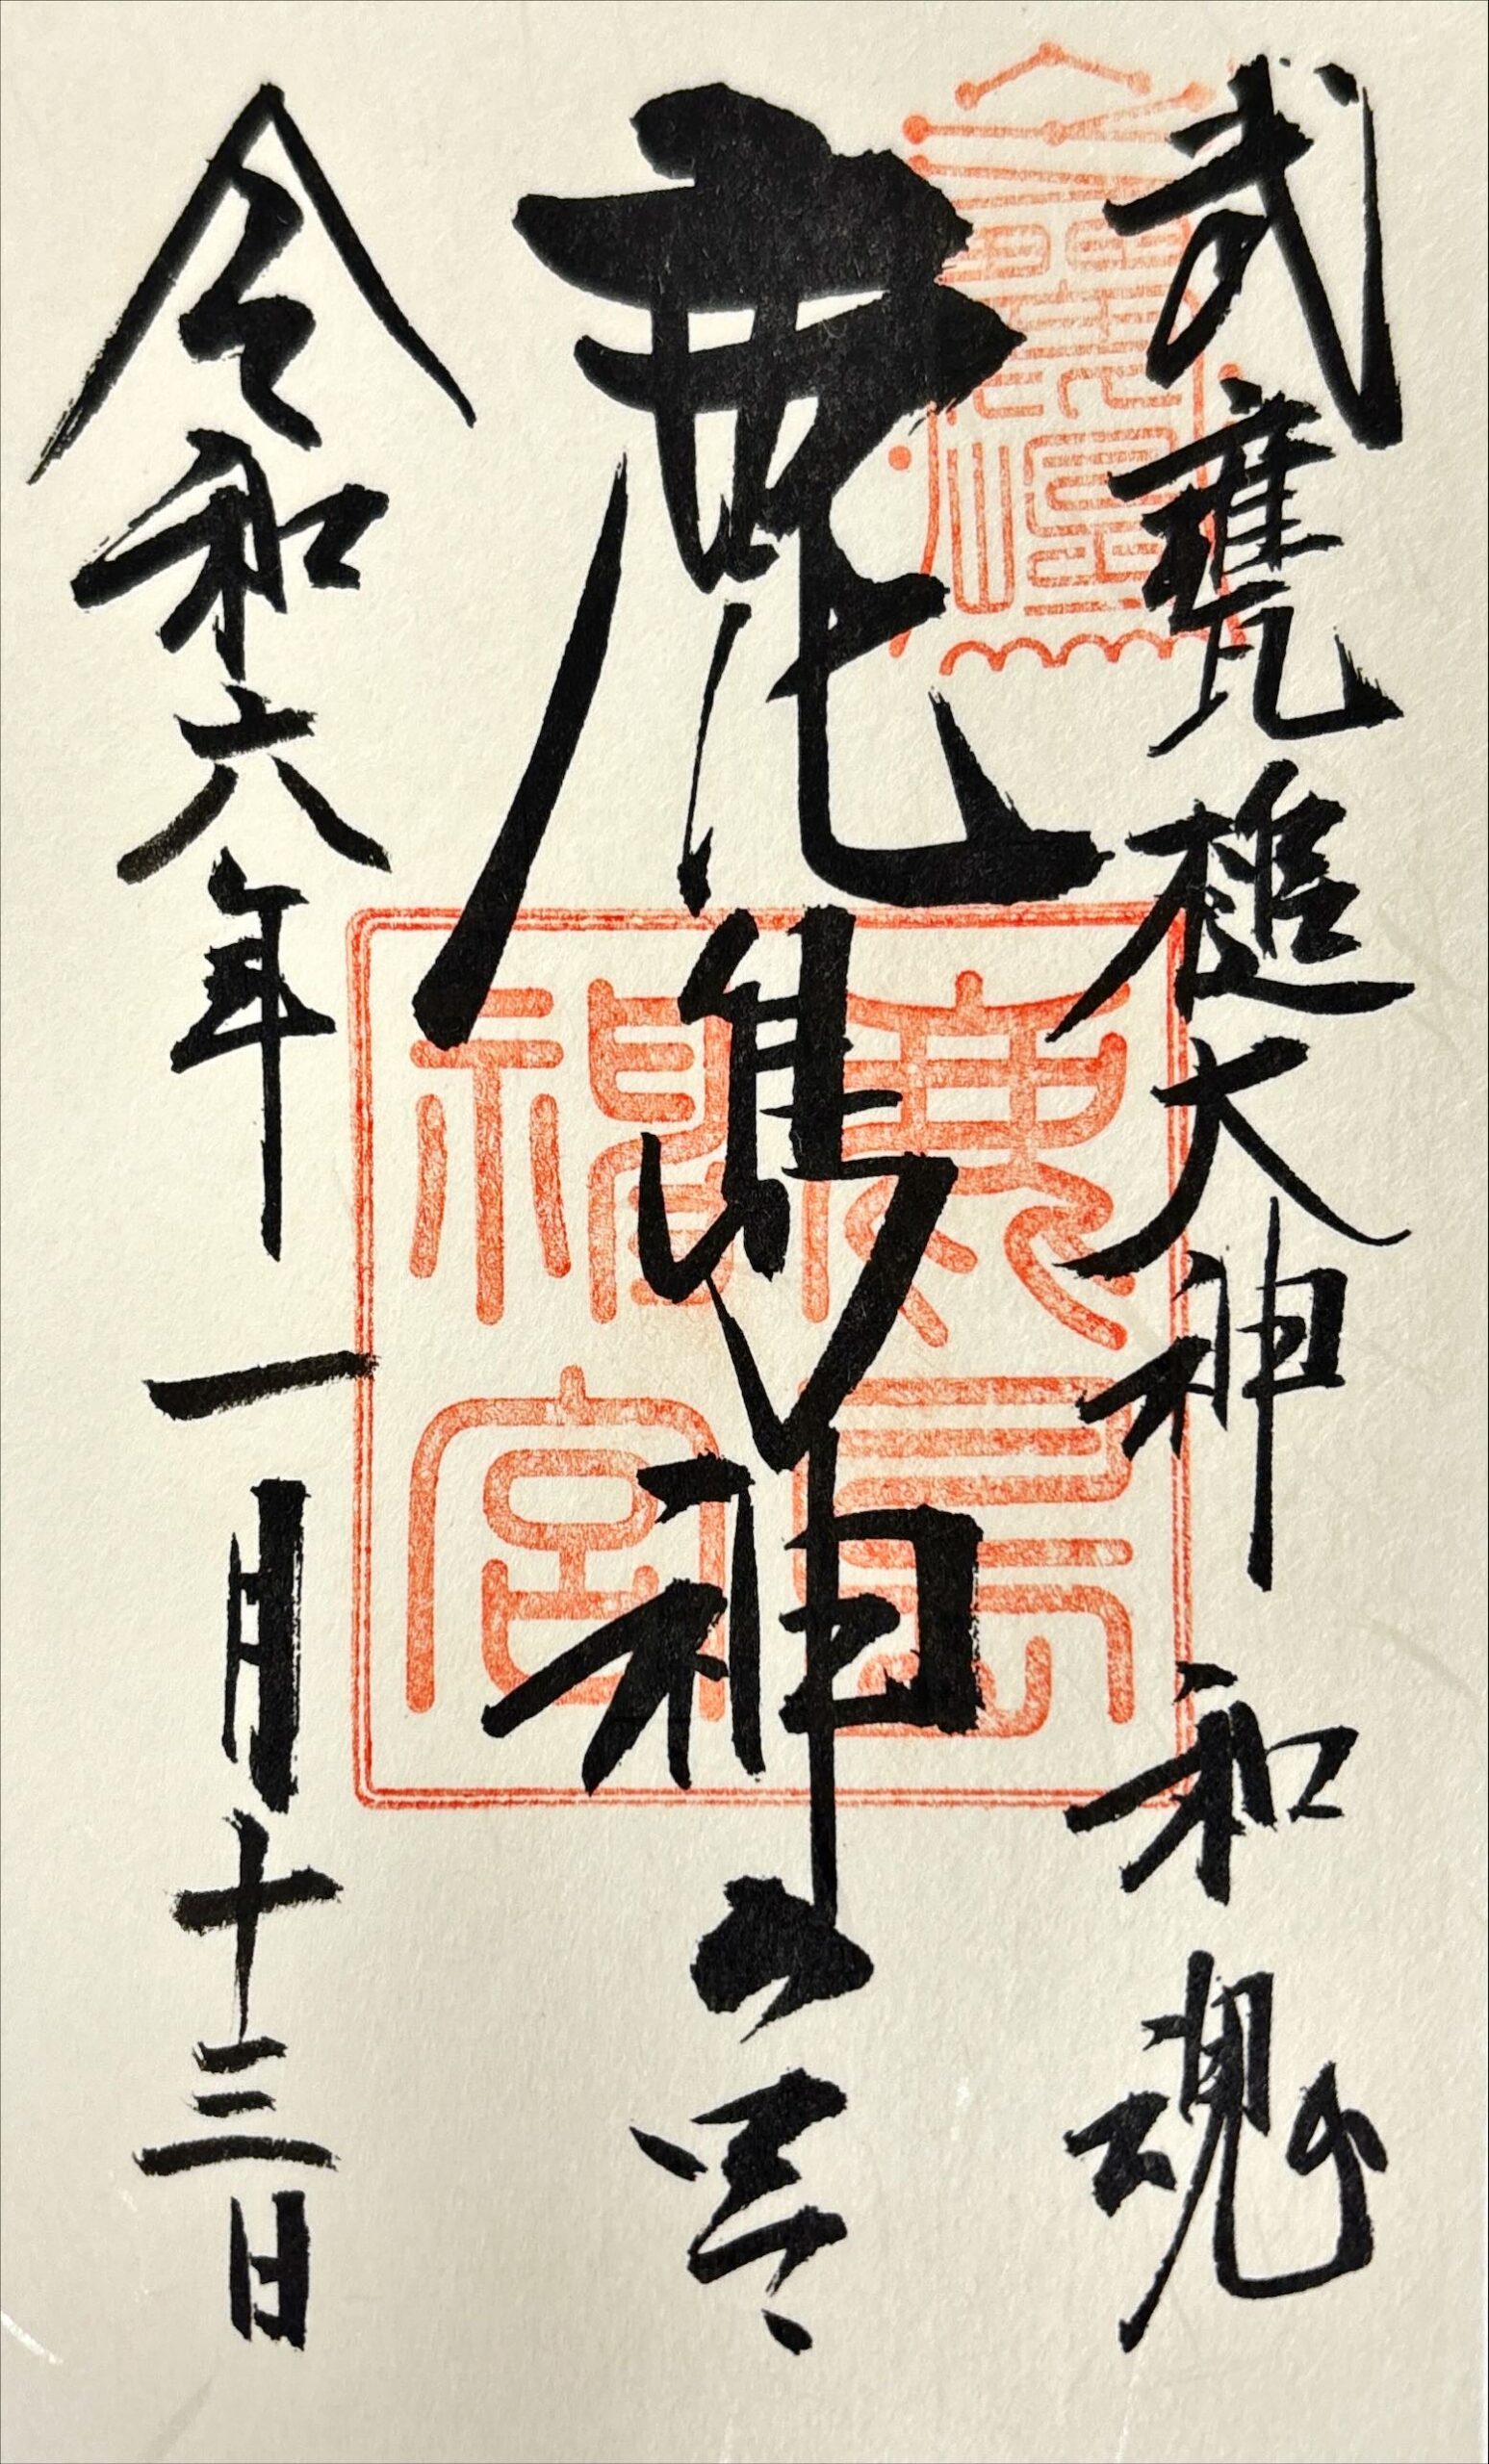 武甕槌大神 和魂
鹿島神宮
令和六年一月十三日
鹿島
神宮